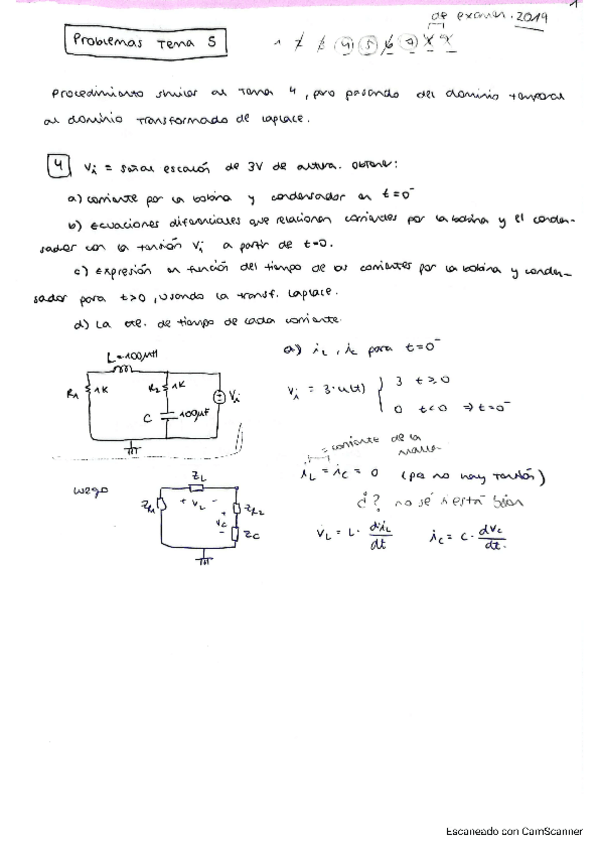 1
de examen. 2019
Problemas Tema 5
Procedimiento similar al Tema 4, pero pasando del dominio temporal
al dominio transformado de Laplace.
4 Vi = señal escalón de 3V de altura. Obtener:
a) corriente por la bobina y condensador en t=0⁻
b) Ecuaciones diferenciales que relacionen corrientes por la bobina y el conden-
sador con la tensión Vi a partir de t=0.
c) Expresión en función del tiempo de las corrientes por la bobina y conden-
sador para t>0, usando la transf. Laplace.
d) La cte. de tiempo de cada corriente.
a) iL, ic para t=0⁻
L=100mH
R1 1K
R2 1K
C 100μF
Vi
Vi = 3·u(t) { 3 t≥0
0 t<0 ⇒ t=0⁻
= corriente de la
malla
iL = ic = 0 (pq no hay tensión)
¿? no sé si está bien
VL = L· diL/dt ic = C· dVc/dt.
Luego
ZL
+ VL -
ZR1
ZR2
+ Vc -
ZC
Escaneado con CamScanner